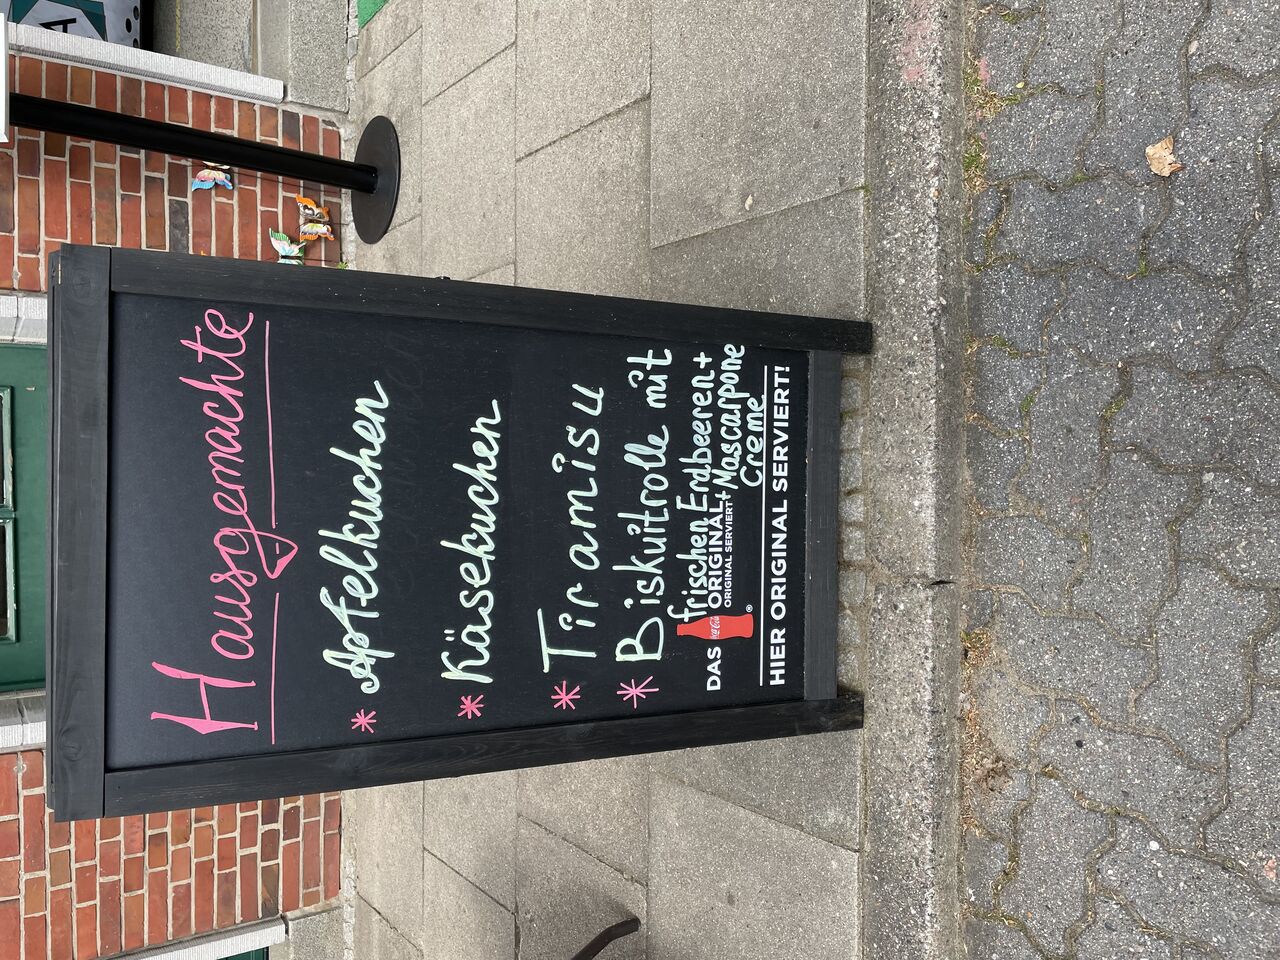 Hausgemachte
* Apfelkuchen
* Käsekuchen
* Tiramisu
* Biskuitrolle mit
frischen Erdbeeren +
+ Mascarpone
Creme
DAS Coca-Cola ORIGINAL
ORIGINAL SERVIERT
®
HIER ORIGINAL SERVIERT!